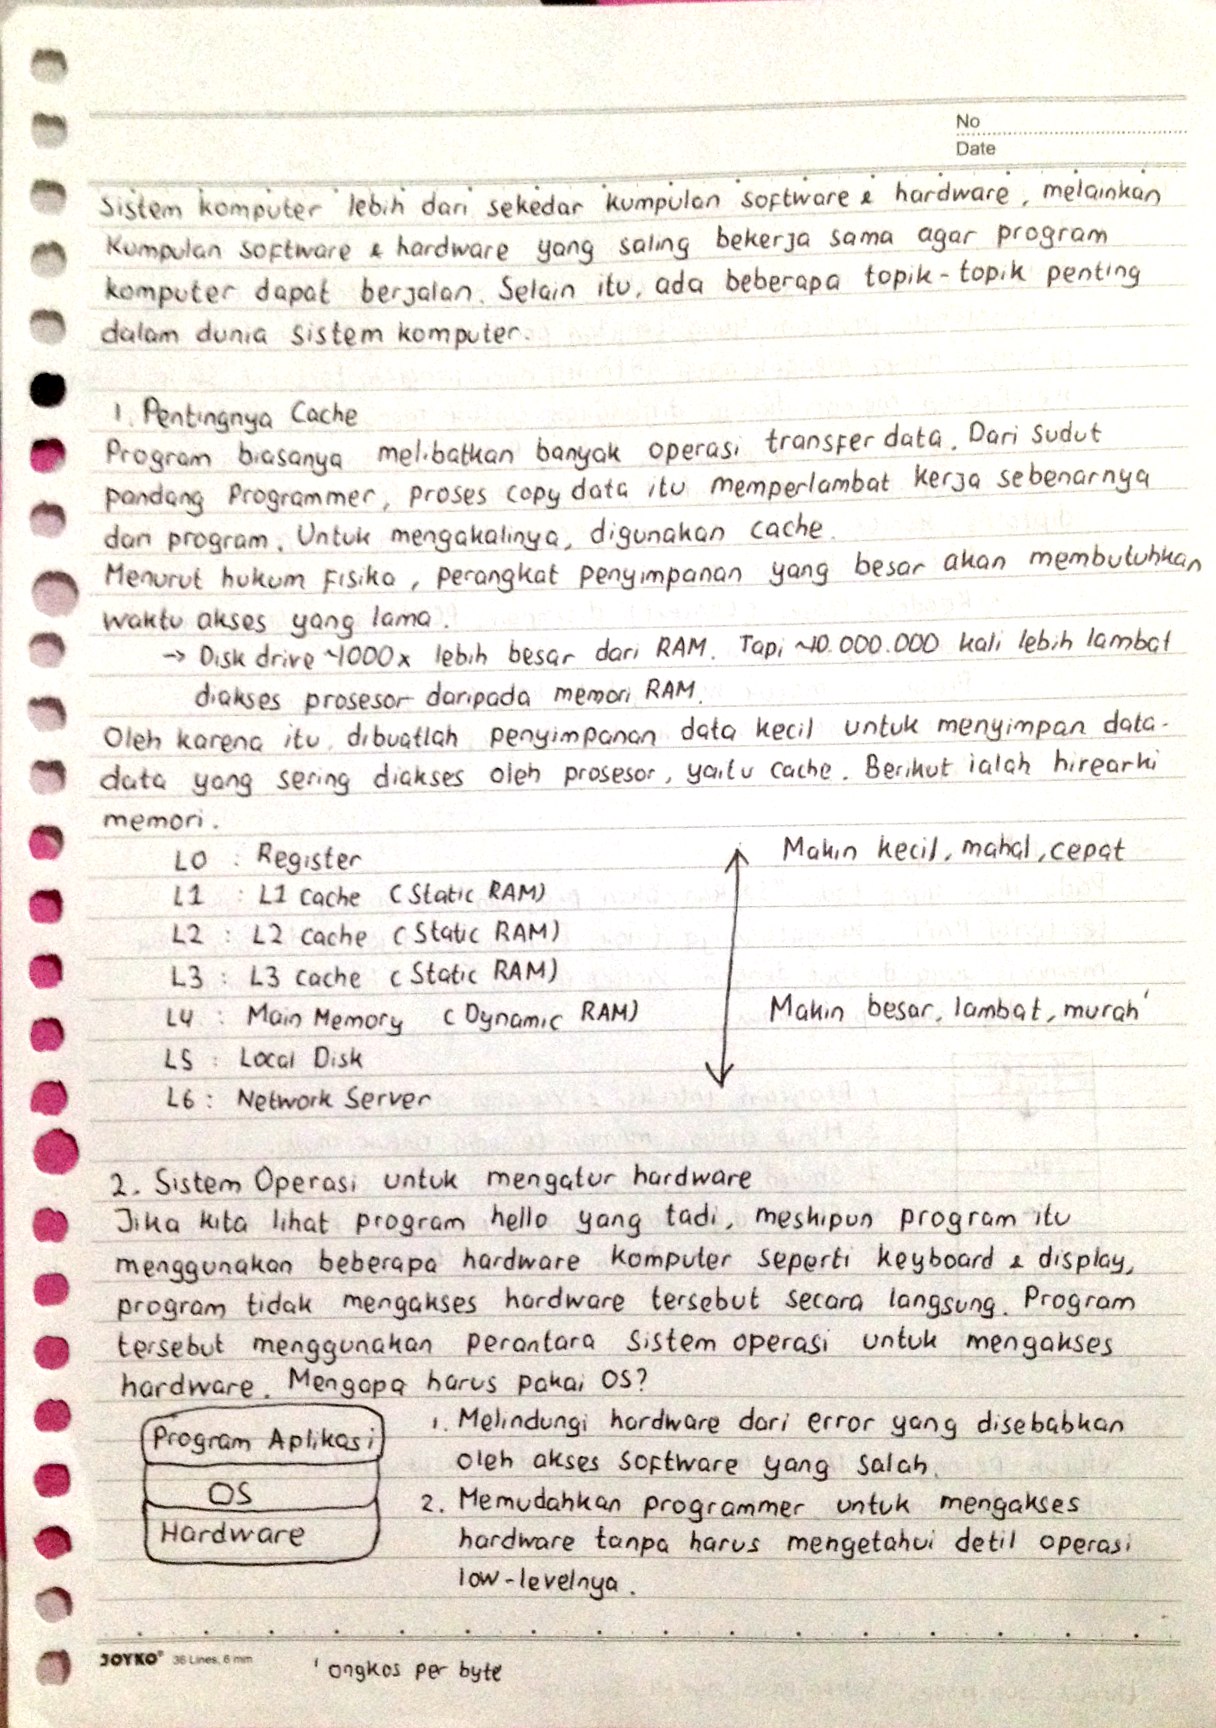 No
Date
Sistem komputer lebih dari sekedar kumpulan software & hardware, melainkan
Kumpulan software & hardware yang saling bekerja sama agar program
komputer dapat berjalan. Selain itu, ada beberapa topik-topik penting
dalam dunia sistem komputer.
1. Pentingnya Cache
Program biasanya melibatkan banyak operasi transfer data. Dari sudut
pandang Programmer, proses copy data itu memperlambat kerja sebenarnya
dari program. Untuk mengakalinya, digunakan cache.
Menurut hukum Fisika, perangkat penyimpanan yang besar akan membutuhkan
waktu akses yang lama.
→ Disk drive ~1000x lebih besar dari RAM. Tapi ~10.000.000 kali lebih lambat
diakses prosesor daripada memori RAM.
Oleh karena itu, dibuatlah penyimpanan data kecil untuk menyimpan data-
data yang sering diakses oleh prosesor, yaitu cache. Berikut ialah hirearki
memori.
L0 : Register Makin kecil, mahal, cepat
L1 : L1 cache (Static RAM)
L2 : L2 cache (Static RAM)
L3 : L3 cache (Static RAM)
L4 : Main Memory (Dynamic RAM) Makin besar, lambat, murah'
L5 : Local Disk
L6 : Network Server
2. Sistem Operasi untuk mengatur hardware
Jika kita lihat program hello yang tadi, meskipun program itu
menggunakan beberapa hardware komputer seperti keyboard & display,
program tidak mengakses hardware tersebut secara langsung. Program
tersebut menggunakan perantara sistem operasi untuk mengakses
hardware. Mengapa harus pakai OS?
Program Aplikasi
OS
Hardware
1. Melindungi hardware dari error yang disebabkan
oleh akses software yang salah.
2. Memudahkan programmer untuk mengakses
hardware tanpa harus mengetahui detil operasi
low-levelnya.
JOYKO® 36 Lines, 6 mm
' ongkos per byte